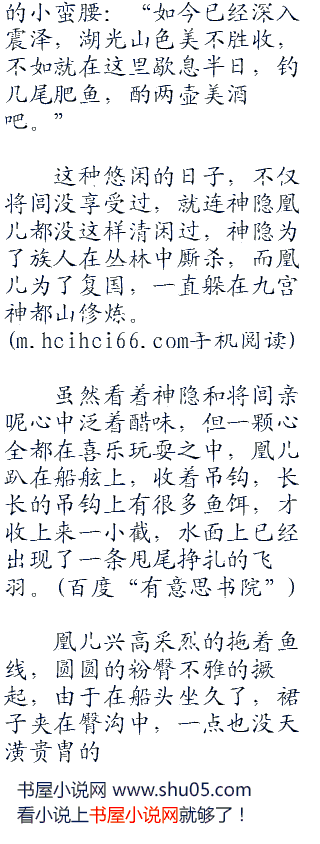 的小蛮腰：“如今已经深入
震泽，湖光山色美不胜收，
不如就在这里歇息半日，钓
几尾肥鱼，酌两壶美酒
吧。”
这种悠闲的日子，不仅
将闾没享受过，就连神隐凰
儿都没这样清闲过，神隐为
了族人在丛林中厮杀，而凰
儿为了复国，一直躲在九宫
神都山修炼。
(m.hcihci66.com手机阅读)
虽然看着神隐和将闾亲
昵心中泛着醋味，但一颗心
全都在喜乐玩耍之中，凰儿
趴在船舷上，收着吊钩，长
长的吊钩上有很多鱼饵，才
收上来一小截，水面上已经
出现了一条甩尾挣扎的飞
羽。(百度“有意思书院”)
凰儿兴高采烈的拖着鱼
线，圆圆的粉臀不雅的撅
起，由于在船头坐久了，裙
子夹在臀沟中，一点也没天
潢贵胄的
书屋小说网 www.shu05.com
看小说上书屋小说网就够了！